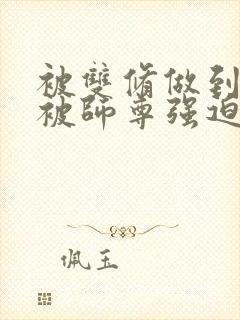 被雙脩做到
被師尊强迫
佩玉